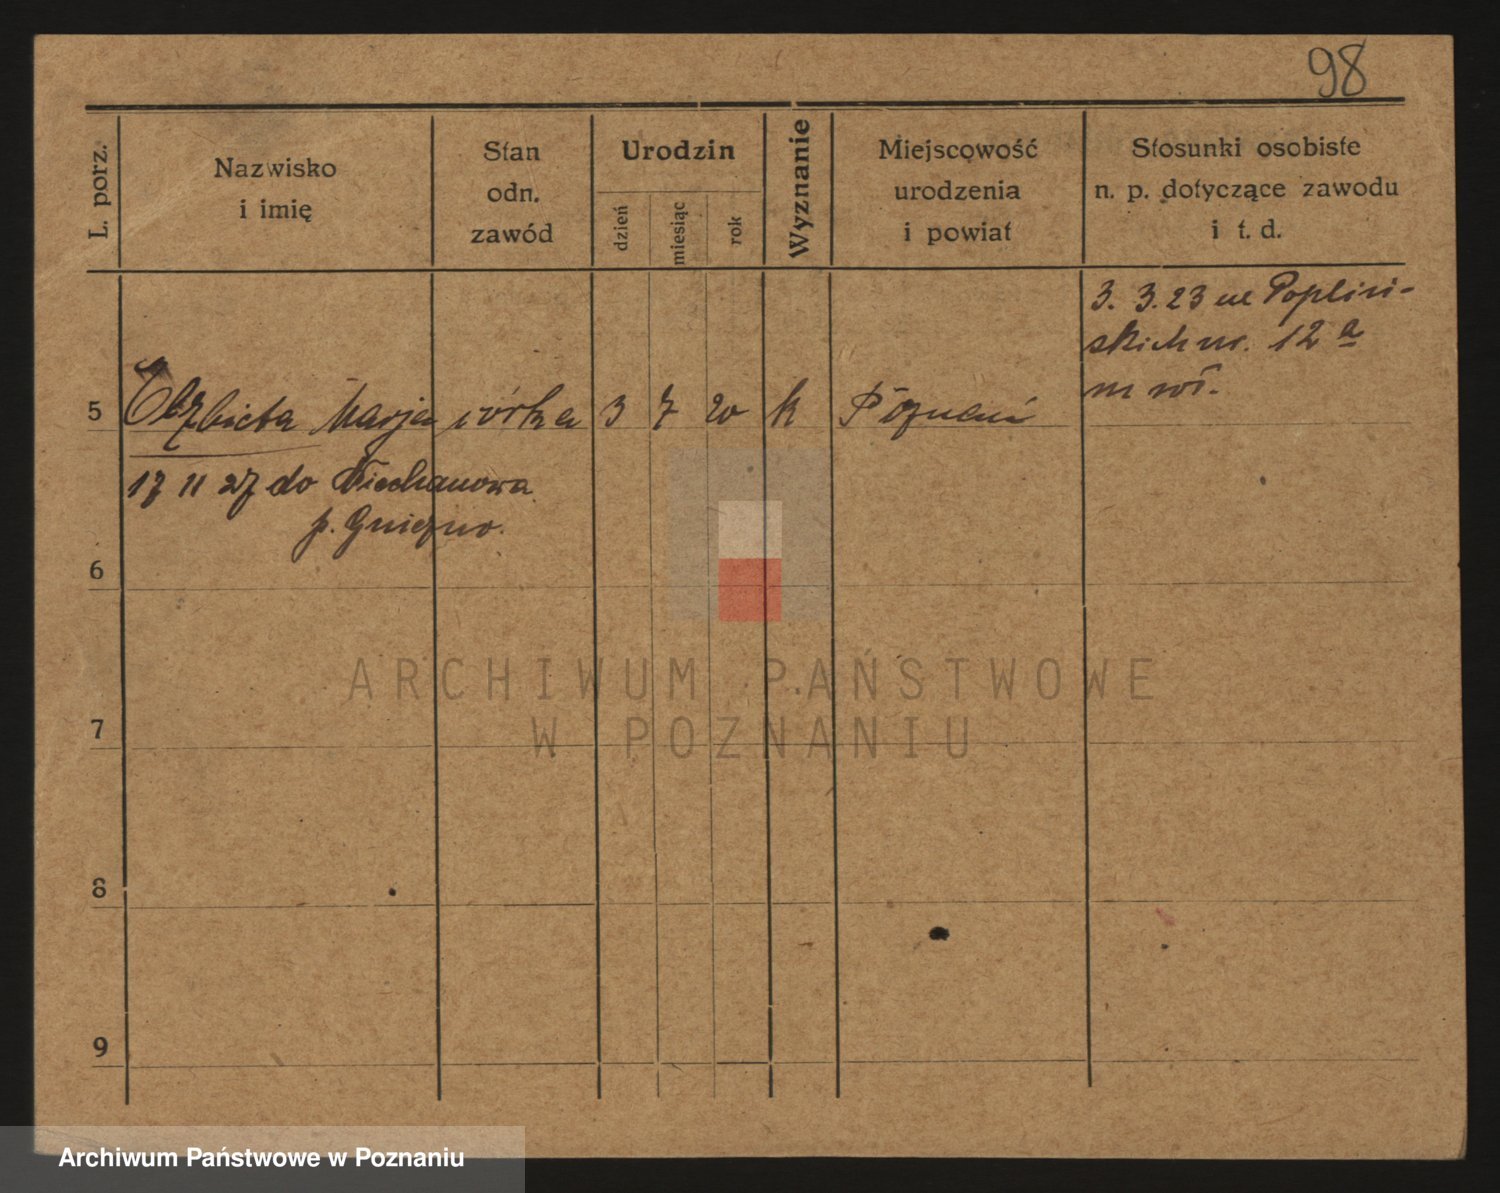 98
L. porz.
Nazwisko
i imię
Stan
odn.
zawód
Urodzin
dzień
miesiąc
rok
Wyznanie
Miejscowość
urodzenia
i powiat
Stosunki osobiste
n. p. dotyczące zawodu
i t. d.
3. 3. 23 ul Popliń-
skich nr. 12 a
m wł.
5 Elżbieta Marja córka 3 7 20 k Poznań
17 11 27 do
p. Gniezno.
6
7
8
9
ARCHIWUM PAŃSTWOWE
W POZNANIU
Archiwum Państwowe w Poznaniu